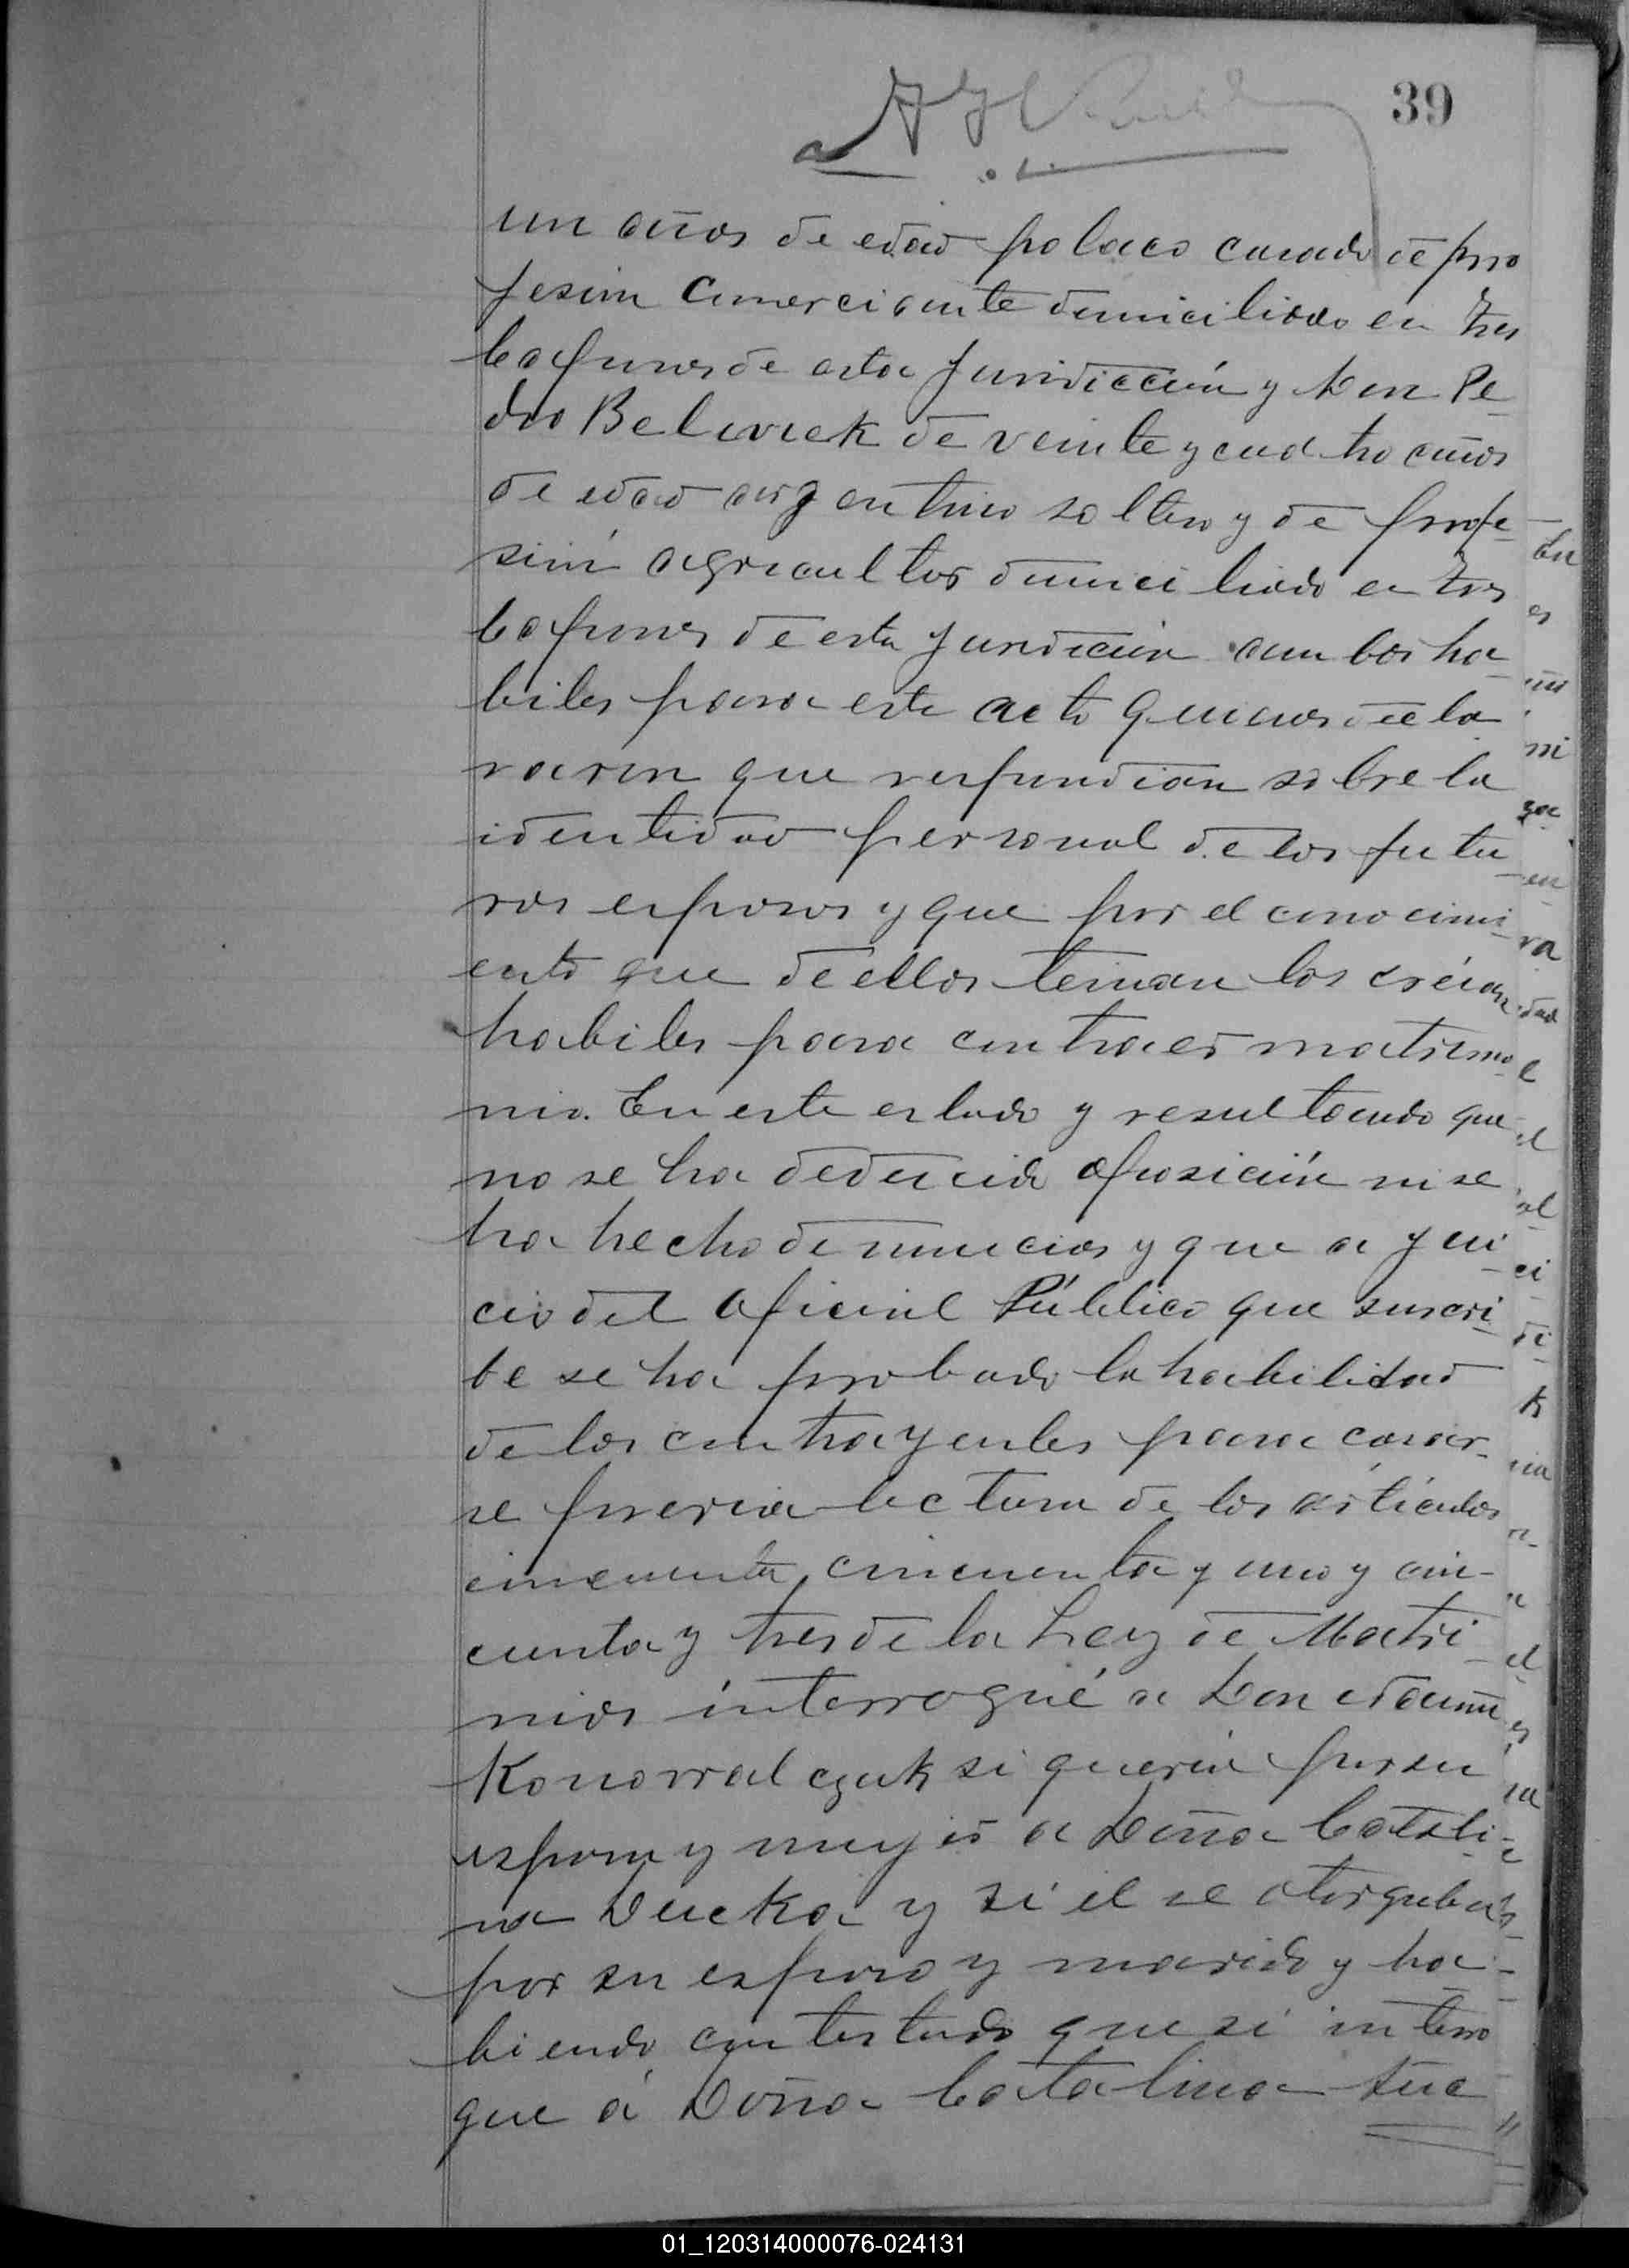 39
un años de edad polaco casado de pro
fesion Comerciante domiciliado en Tres
Capones de esta Jurisdicción y Don Pe-
dro Belwek de veinte y cuatro años
de edad argentino soltero y de profe-
sion agricultor domiciliado en Tres
Capones de esta Jurisdicion ambos ha-
biles para este acto quienes decla
raron que respondian sobre la
identidad personal de los futu-
ros esposos y que por el conocimi-
ento que de ellos tenian los creian
habiles para contraer matrimo
nio. En este estado y resultando que
no se ha deducido oposición ni se
ha hecho denuncias y que a jui-
cio del Oficial Público que suscri-
be se ha probado la habilidad
de los contrayentes para casar-
se previa lectura de los artículos
cincuenta, cincuenta y uno y cin-
cuenta y tres de la Ley de Matri-
nios interrogué a Don
Konowalczuk si queria por su
esposa y mujer a Doña Catali-
na Ducka y si él se otorgaba
por su esposo y marido y ha-
biendo contestado que si interro
gue á Doña Catalina
01_120314000076-024131